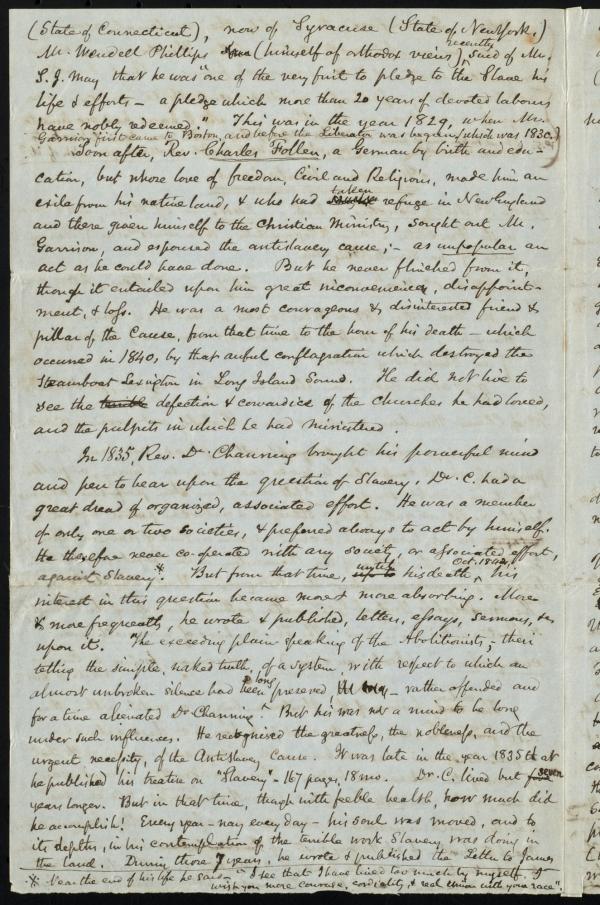 (State of Connecticut), now of Syracuse (State of New York.)
Mr. Wendell Phillips (himself of orthodox views) recently said of Mr.
S. J. May that he was "one of the very first to pledge to the Slave his
life & efforts – a pledge which more than 20 years of devoted labours
have nobly redeemed." This was in the year 1829, when Mr.
Garrison first came to Boston, and before the Liberator was begun (which was 1830.)
Soon after, Rev. Charles Follen, a German by birth and edu-
cation, but whose love of freedom, Civil and Religious, made him an
exile from his native land, & who had taken refuge in New England
and there given himself to the Christian Ministry, sought out Mr.
Garrison, and espoused the antislavery cause; – as unpopular an
act as he could have done. But he never flinched from it,
though it entailed upon him great inconvenience, disappoint-
ment, & loss. He was a most courageous & disinterested friend &
pillar of the Cause, from that time to the hour of his death – which
occurred in 1840, by that awful conflagration which destroyed the
Steamboat Lexington in Long Island Sound. He did not live to
see the terrible defection & cowardice of the Churches he had loved,
and the pulpits in which he had ministered.
In 1835, Rev. Dr. Channing brought his powerful mind
and pen to bear upon the question of Slavery. Dr. C. had a
great dread of organized, associated effort. He was a member
of only one or two Societies, & preferred always to act by himself.
He therefore never co-operated with any society, or associated effort,
against Slavery.* But from that time, until his death, Oct. 1842, his
interest in this question became more & more absorbing. More
& more frequently, he wrote & published, letters, essays, sermons, &c
upon it. The exceeding plain speaking of the Abolitionists, – their
telling the simple, naked truth, of a system with respect to which an
almost unbroken silence had long been preserved – rather offended and
for a time alienated Dr. Channing. But his was not a mind to be long
under such influences. He recognised the greatness, the nobleness, and the
urgent necessity, of the AntiSlavery Cause. It was late in the year 1835 that
he published his treatise on "Slavery" – 167 pages, 18mo. Dr. C. lived but seven
years longer. But in that time, though with feeble health, how much did
he accomplish! Every year – nay every day – his soul was moved, and to
its depths, in his contemplation of the terrible work Slavery was doing in
the land. During those 7 years, he wrote & published the Letter to James
* Near the end of his life he said – "I see that I have lived too much by myself. I
wish you more courage, cordiality, & real Union with your race".